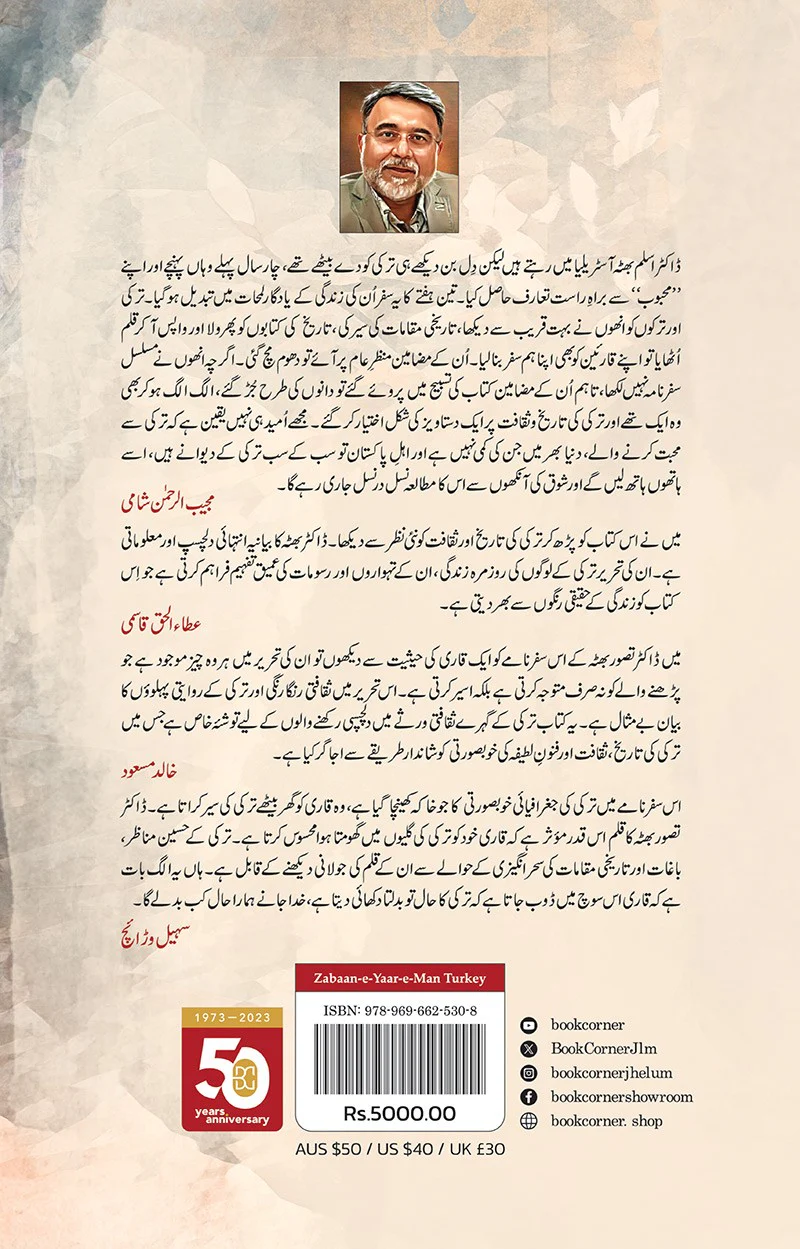 ڈاکٹر اسلم بھٹہ آسٹریلیا میں رہتے ہیں لیکن دِل بن دیکھے ہی ترکی کو دے بیٹھے تھے، چار سال پہلے وہاں پہنچے اور اپنے
’’محبوب‘‘ سے براہِ راست تعارف حاصل کیا۔ تین ہفتے کا یہ سفر اُن کی زندگی کے یادگار لمحات میں تبدیل ہوگیا۔ ترکی
اور ترکوں کو انھوں نے بہت قریب سے دیکھا، تاریخی مقامات کی سیر کی، تاریخ کی کتابوں کو پھرولا اور واپس آ کر قلم
اُٹھایا تو اپنے قارئین کو بھی اپنا ہم سفر بنا لیا۔ اُن کے مضامین منظرِ عام پر آئے تو دھوم مچ گئی۔ اگرچہ انھوں نے مسلسل
سفرنامہ نہیں لکھا، تاہم اُن کے مضامین کتاب کی تسبیح میں پروئے گئے تو دانوں کی طرح جُڑ گئے، الگ الگ ہو کر بھی
وہ ایک تھے اور ترکی کی تاریخ و ثقافت پر ایک دستاویز کی شکل اختیار کر گئے۔ مجھے اُمید ہی نہیں یقین ہے کہ ترکی سے
محبت کرنے والے، دنیا بھر میں جن کی کمی نہیں ہے اور اہلِ پاکستان تو سب کے سب ترکی کے دیوانے ہیں، اسے
ہاتھوں ہاتھ لیں گے اور شوق کی آنکھوں سے اس کا مطالعہ نسل در نسل جاری رہے گا۔
مجیب الرحمٰن شامی
میں نے اس کتاب کو پڑھ کر ترکی کی تاریخ اور ثقافت کو نئی نظر سے دیکھا۔ ڈاکٹر بھٹہ کا بیانیہ انتہائی دلچسپ اور معلوماتی
ہے۔ ان کی تحریر ترکی کے لوگوں کی روزمرہ زندگی، ان کے تہواروں اور رسومات کی عمیق تفہیم فراہم کرتی ہے جو اِس
کتاب کو زندگی کے حقیقی رنگوں سے بھر دیتی ہے۔
عطاء الحق قاسمی
میں ڈاکٹر تصور بھٹہ کے اس سفرنامے کو ایک قاری کی حیثیت سے دیکھوں تو ان کی تحریر میں ہر وہ چیز موجود ہے جو
پڑھنے والے کو نہ صرف متوجہ کرتی ہے بلکہ اسیر کرتی ہے۔ اس تحریر میں ثقافتی رنگا رنگی اور ترکی کے روایتی پہلوؤں کا
بیان بے مثال ہے۔ یہ کتاب ترکی کے گہرے ثقافتی ورثے میں دلچسپی رکھنے والوں کے لیے توشۂ خاص ہے جس میں
ترکی کی تاریخ، ثقافت اور فنونِ لطیفہ کی خوبصورتی کو شاندار طریقے سے اجاگر کیا ہے۔
خالد مسعود
اس سفرنامے میں ترکی کی جغرافیائی خوبصورتی کا جو خاکہ کھینچا گیا ہے، وہ قاری کو گھر بیٹھے ترکی کی سیر کراتا ہے۔ ڈاکٹر
تصور بھٹہ کا قلم اس قدر مؤثر ہے کہ قاری خود کو ترکی کی گلیوں میں گھومتا ہوا محسوس کرتا ہے۔ ترکی کے حسین مناظر،
باغات اور تاریخی مقامات کی سحر انگیزی کے حوالے سے ان کے قلم کی جولانی دیکھنے کے قابل ہے۔ ہاں یہ الگ بات
ہے کہ قاری اس سوچ میں ڈوب جاتا ہے کہ ترکی کا حال تو بدلتا دکھائی دیتا ہے، خدا جانے ہمارا حال کب بدلے گا۔
سہیل وڑائچ
1973–2023
50
years
anniversary
Zabaan-e-Yaar-e-Man Turkey
ISBN: 978-969-662-530-8
Rs.5000.00
AUS $50 / US $40 / UK £30
bookcorner
BookCornerJlm
bookcornerjhelum
bookcornershowroom
bookcorner. shop